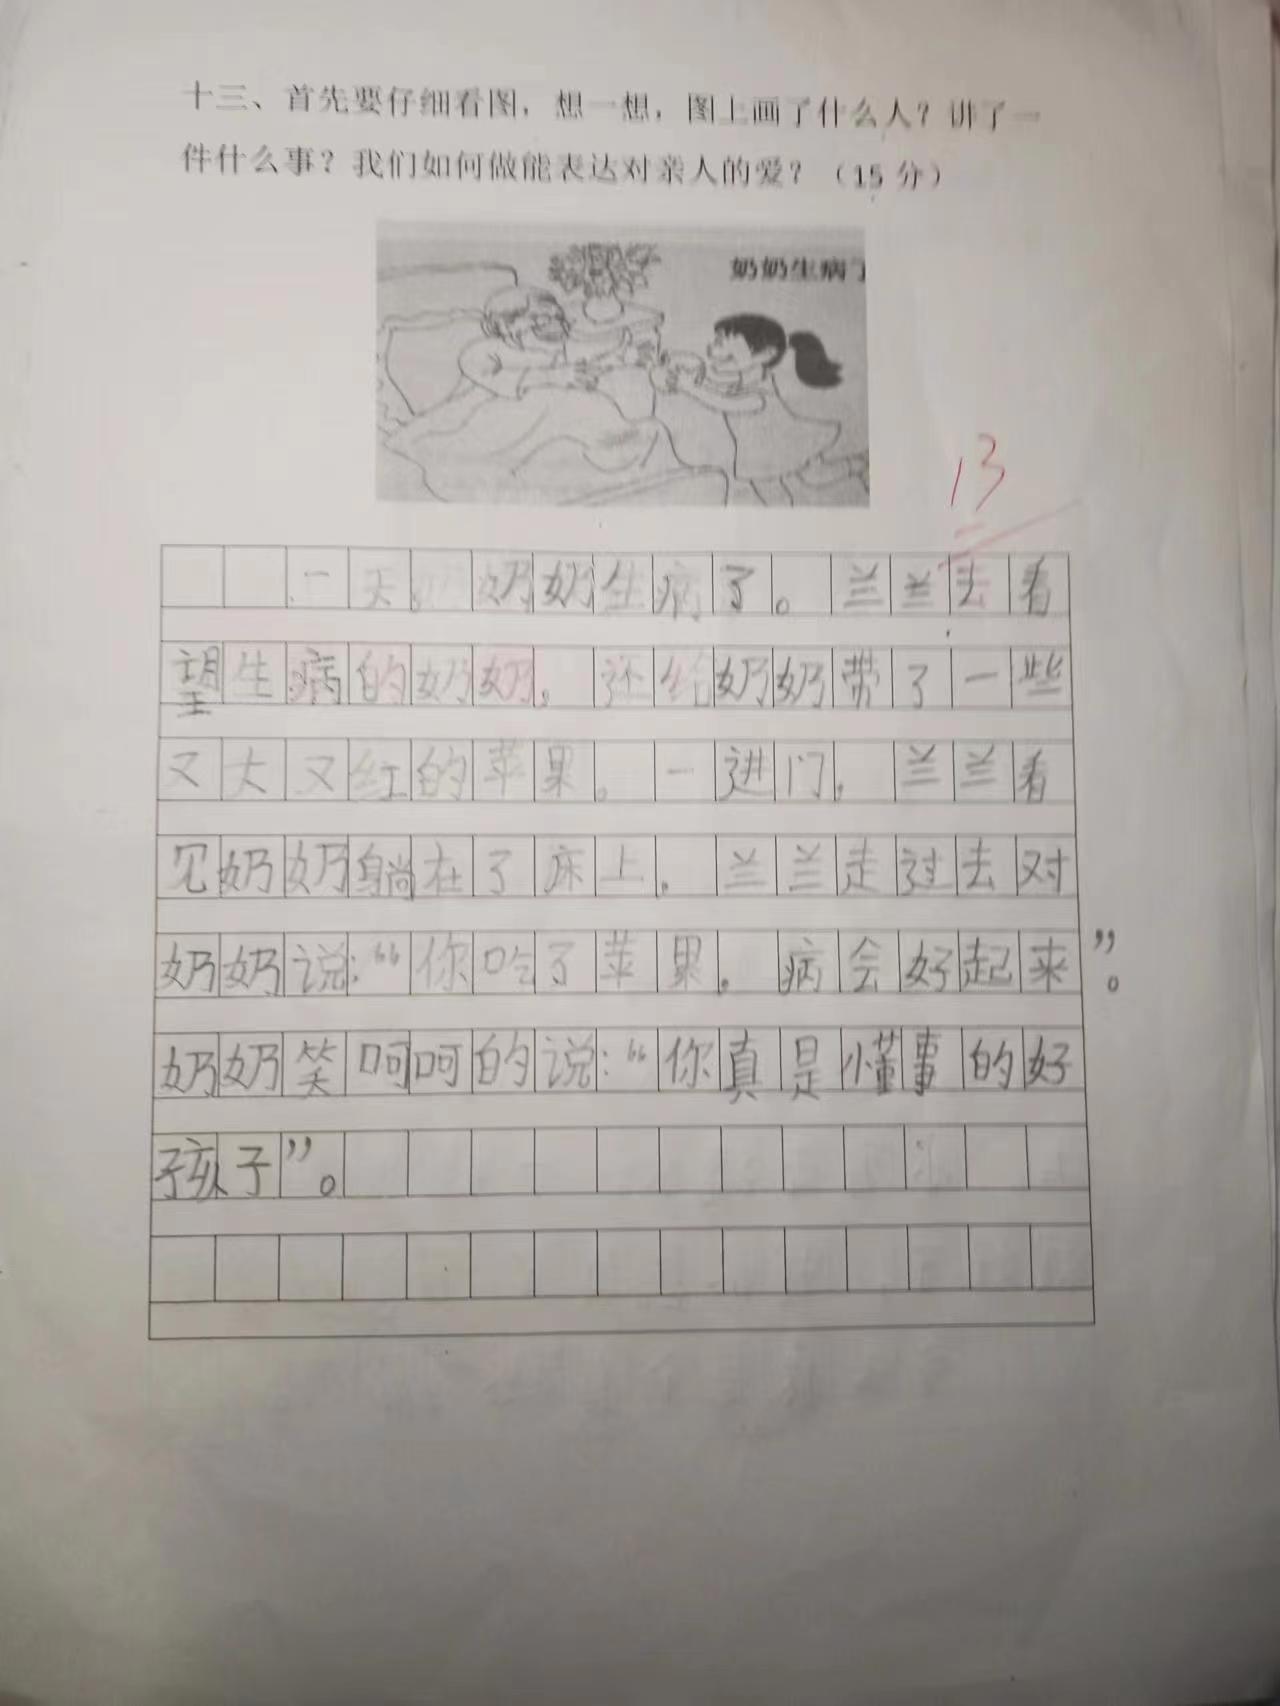 十三、首先要仔细看图，想一想，图上画了什么人？讲了一
件什么事？我们如何做能表达对亲人的爱？（15 分）
奶奶生病了
13
一天，奶奶生病了。兰兰去看
望生病的奶奶，还给奶奶带了一些
又大又红的苹果。一进门，兰兰看
见奶奶躺在了床上，兰兰走过去对
奶奶说：“你吃了苹果，病会好起来”。
奶奶笑呵呵的说：“你真是懂事的好
孩子”。